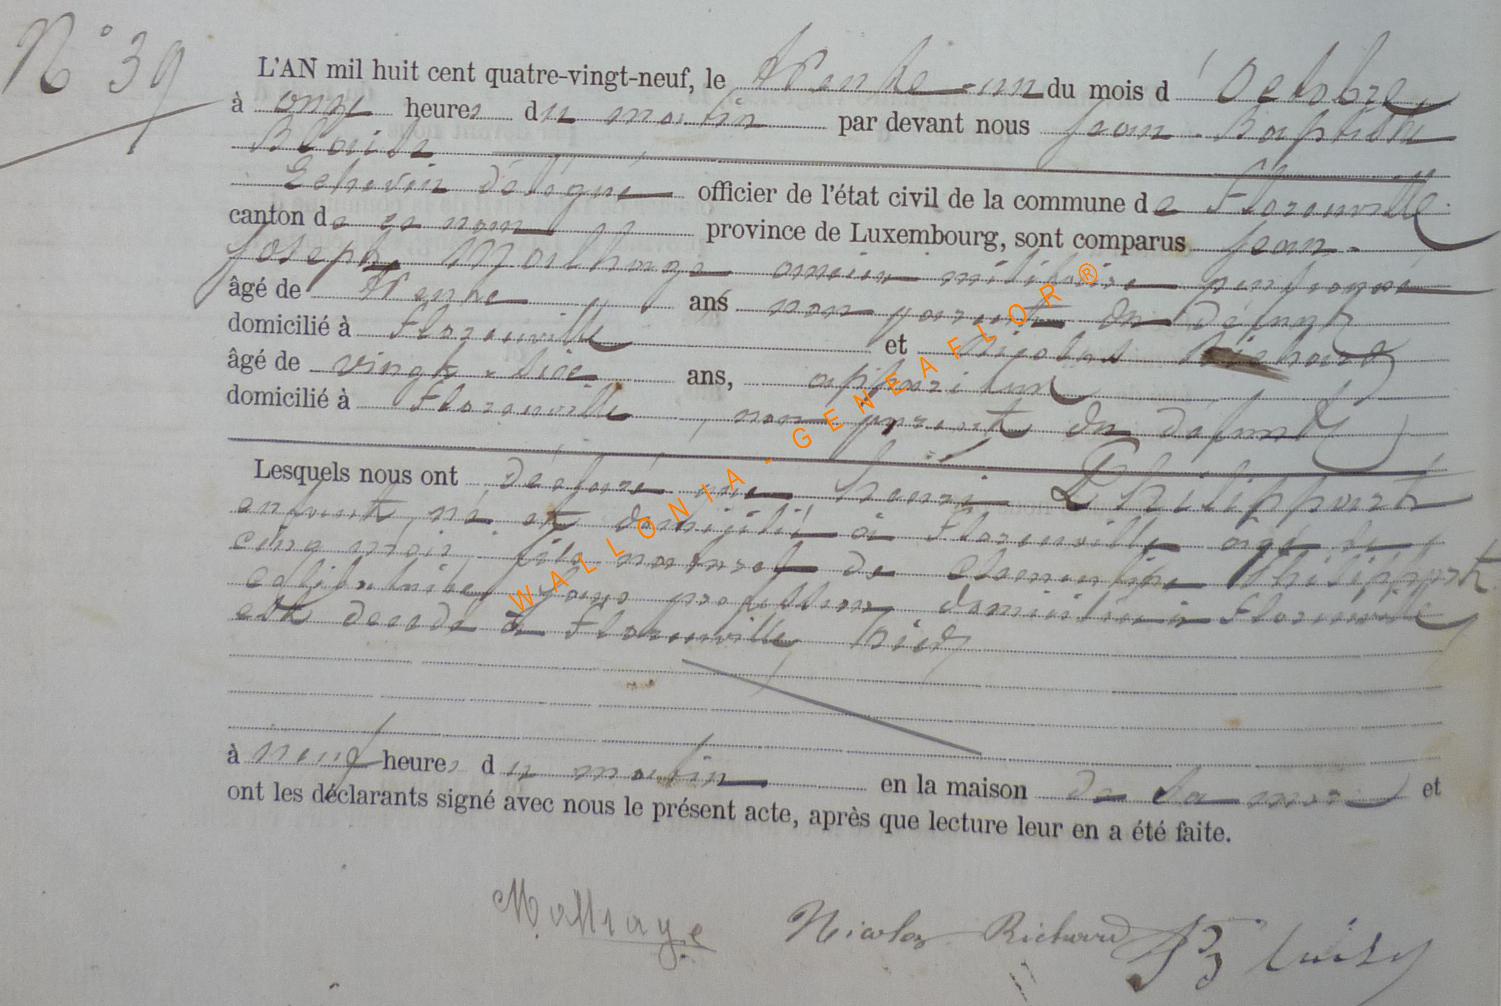 N° 39
L'AN mil huit cent quatre-vingt-neuf, le trente-un du mois d'Octobre
à onze heures du matin par devant nous Jean-Baptiste
Echevin délégué officier de l'état civil de la commune de Florenville
canton de ce nom province de Luxembourg, sont comparus Jean-
Joseph ancien militaire pensionné
âgé de trente ans non parent du défunt
domicilié à Florenville et Nicolas Richard
âgé de vingt-six ans, appariteur
domicilié à Florenville, non parent du défunt
Lesquels nous ont déclaré que Henri Philippart
enfant, né et domicilié à Florenville âgé de
cinq mois, fils naturel de Clémentine Philippart
célibataire, sans profession, domiciliée à Florenville
est décédé à Florenville hier
à neuf heures du matin en la maison de la mère et
ont les déclarants signé avec nous le présent acte, après que lecture leur en a été faite.
Nicolas Richard
WALLONIA-GENEAFLOR®